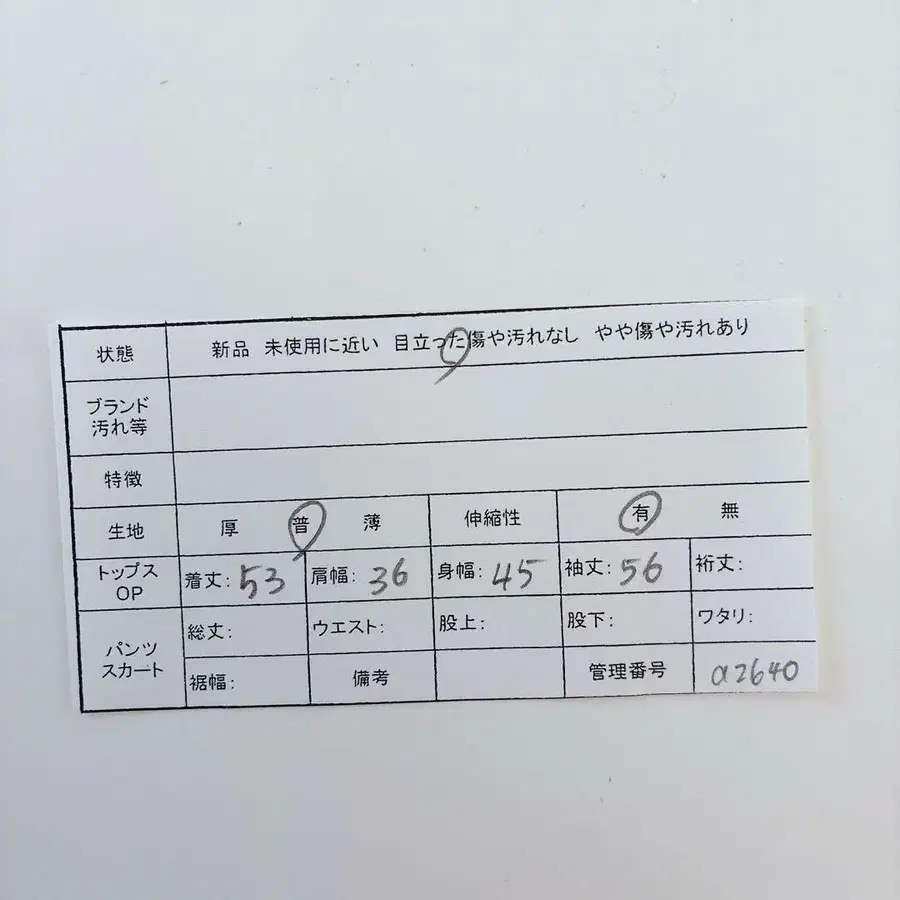 状態 新品 未使用に近い 目立った傷や汚れなし やや傷や汚れあり
ブランド
汚れ等
特徴
生地 厚 普 薄 伸縮性 有 無
トップス
OP
着丈: 53 肩幅: 36 身幅: 45 袖丈: 56 裄丈:
パンツ
スカート
総丈: ウエスト: 股上: 股下: ワタリ:
裾幅: 備考 管理番号 a2640